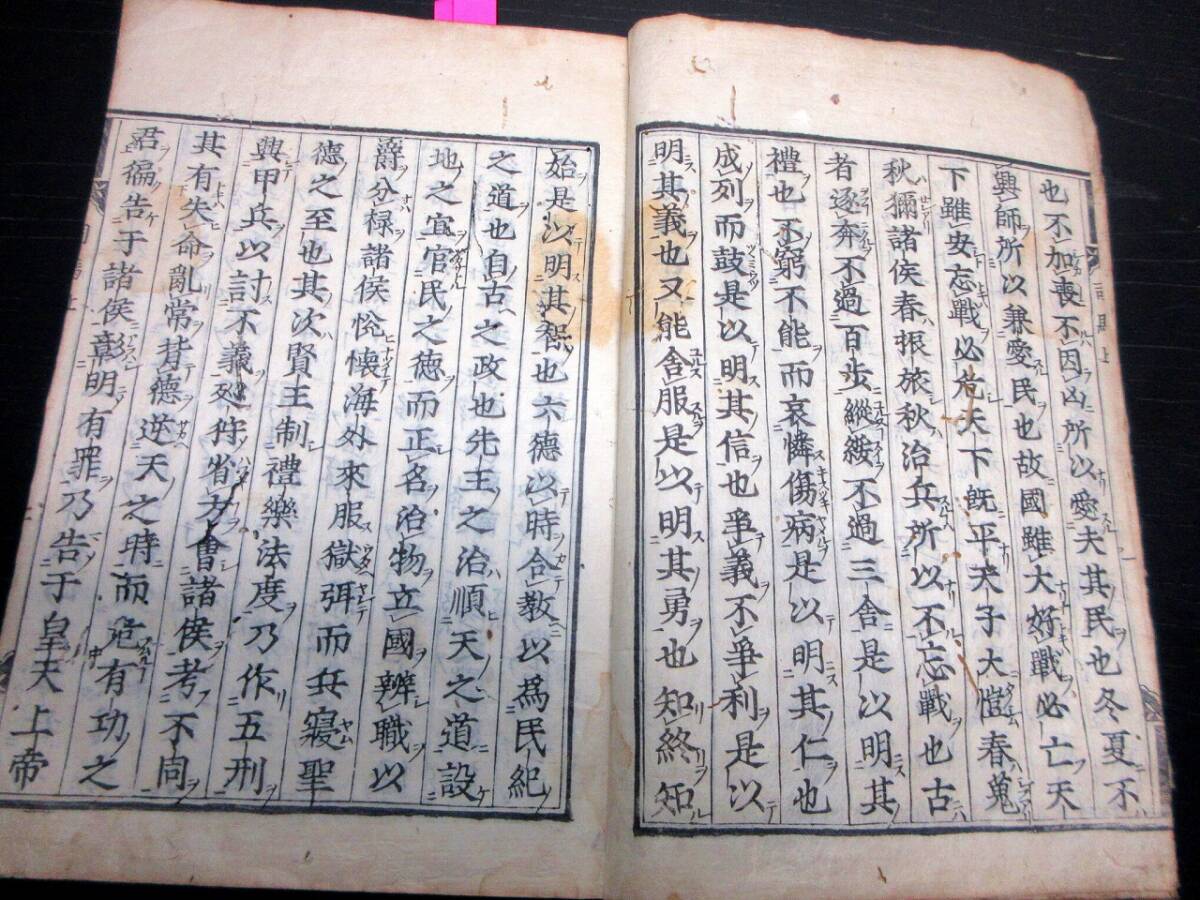 也不加喪不因凶所以愛夫其民也冬夏不
興師所以兼愛民也故國雖大好戰必亡天
下雖安忘戰必危天下既平天子大愷春蒐
秋獮諸侯春振旅秋治兵所以不忘戰也古
者逐奔不過百步縱綏不過三舍是以明其
禮也不窮不能而哀憐傷病是以明其仁也
成列而鼓是以明其信也爭義不爭利是以
明其義也又能舍服是以明其勇也知終知
始是以明其智也六德以時合教以爲民紀
之道也自古之政也先王之治順天之道設
地之宜官民之德而正名治物立國辨職以
爵分禄諸侯悦懐海外來服獄弭而兵寢聖
德之至也其次賢王制禮樂法度乃作五刑
興甲兵以討不義廵狩省方會諸侯考不同
其有失命亂常背德逆天之時而危有功之
君徧告于諸侯彰明有罪乃告于皇天上帝